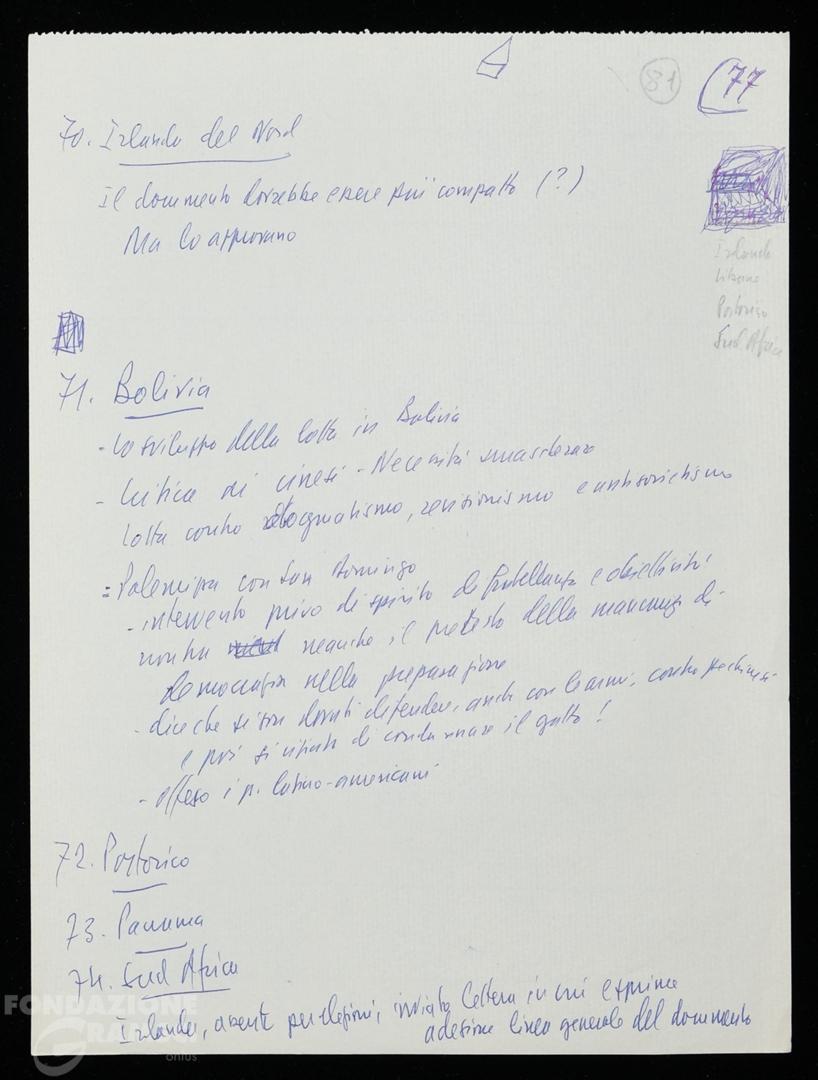 81
(77
70. Irlanda del Nord
Il documento dovrebbe essere più compatto (?)
Ma lo approvano
Irlanda
Libano
Portorico
Sud Africa
71. Bolivia
- Lo sviluppo della lotta in Bolivia
- Critica ai cinesi - Necessità smascherare
lotta contro dogmatismo, revisionismo e antisovietismo
= Polemica con San Domingo
- intervento privo di spirito di fratellanza e obiettività
non ha neanche il pretesto della mancanza di
democrazia nella preparazione
- dice che si son dovuti difendere, anche con le armi, contro
e poi si rifiuta di condannare il gatto!
- offeso i p. latino-americani
72. Portorico
73. Panama
74. Sud Africa
Irlanda, assente per elezioni, inviato lettera in cui esprime
adesione linea generale del documento
FONDAZIONE
GRAMSCI
onlus